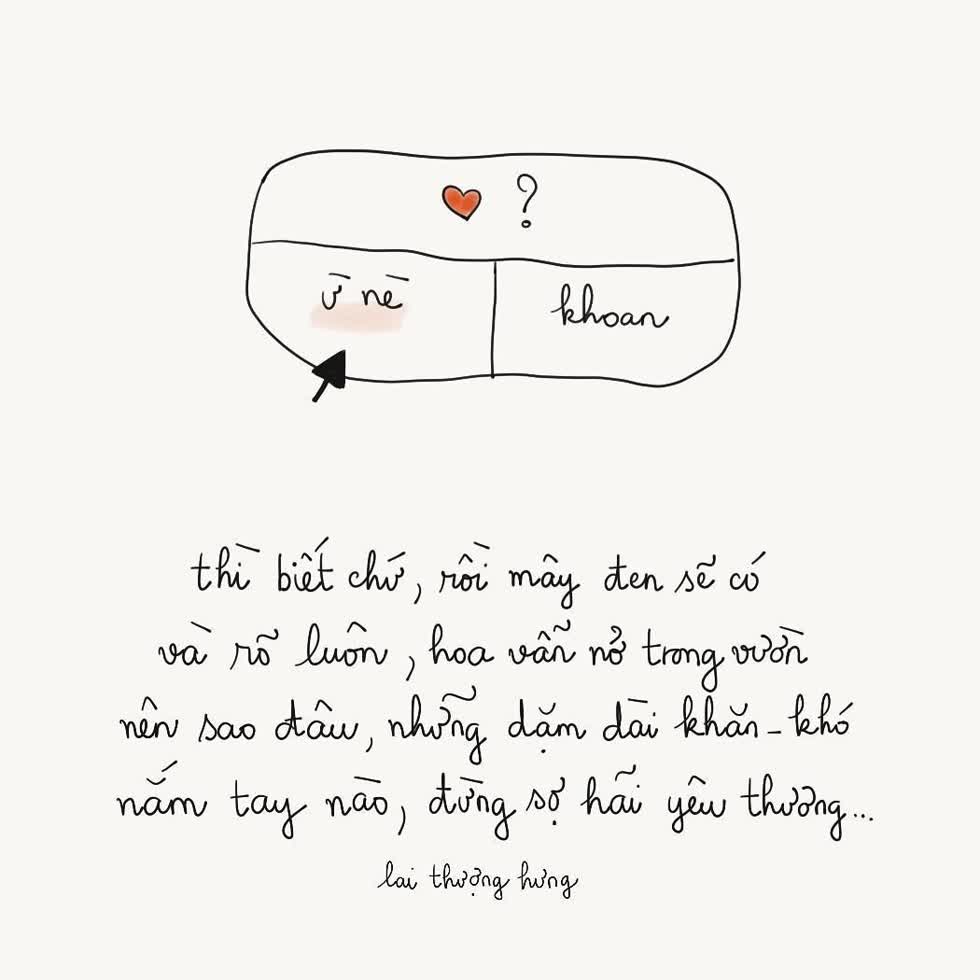 ❤ ?
ừ nè
khoan
thì biết chứ, rồi mây đen sẽ có
và rõ luôn, hoa vẫn nở trong vườn
nên sao đâu, những dặm dài khăn-khó
nắm tay nào, đừng sợ hãi yêu thương...
lai thượng hưng